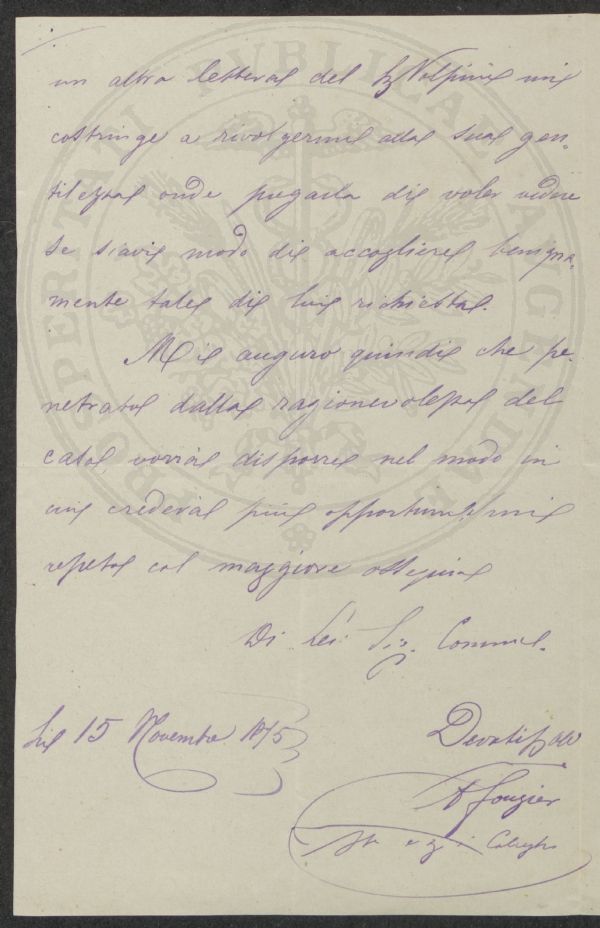 un altra lettera del Sig Volpini mi
costringe a rivolgermi alla sua gen-
tilezza onde pregarla di voler vedere
se siavi modo di accogliere benigna-
mente tale di lui richiesta.
Mi auguro quindi che pe-
netrato dalla ragionevolezza del
caso vorrà disporre nel modo in
cui crederà più opportuno, mi
repeto col maggiore ossequio
Di Lei Sig. Comm.
Li 15 Novembre 1875
Devotiss
PROSPERITATI PVBLICAE AVGENDAE